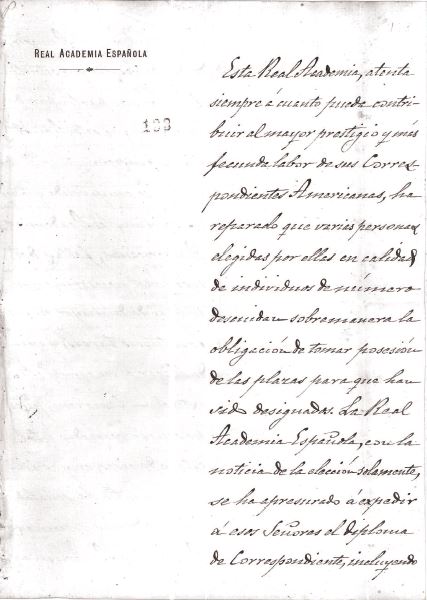 REAL ACADEMIA ESPAÑOLA
133
Esta Real Academia, atenta
siempre á cuanto pueda contri-
buir al mayor prestigio y más
fecunda labor de sus Corres-
pondientes Americanas, ha
reparado que varias personas
elegidas por ellas en calidad
de individuos de número
descuidan sobremanera la
obligación de tomar posesión
de las plazas para que han
sido designadas. La Real
Academia Española, con la
noticia de la elección solamente,
se ha apresurado á expedir
á esos Señores el diploma
de Correspondiente, incluyendo